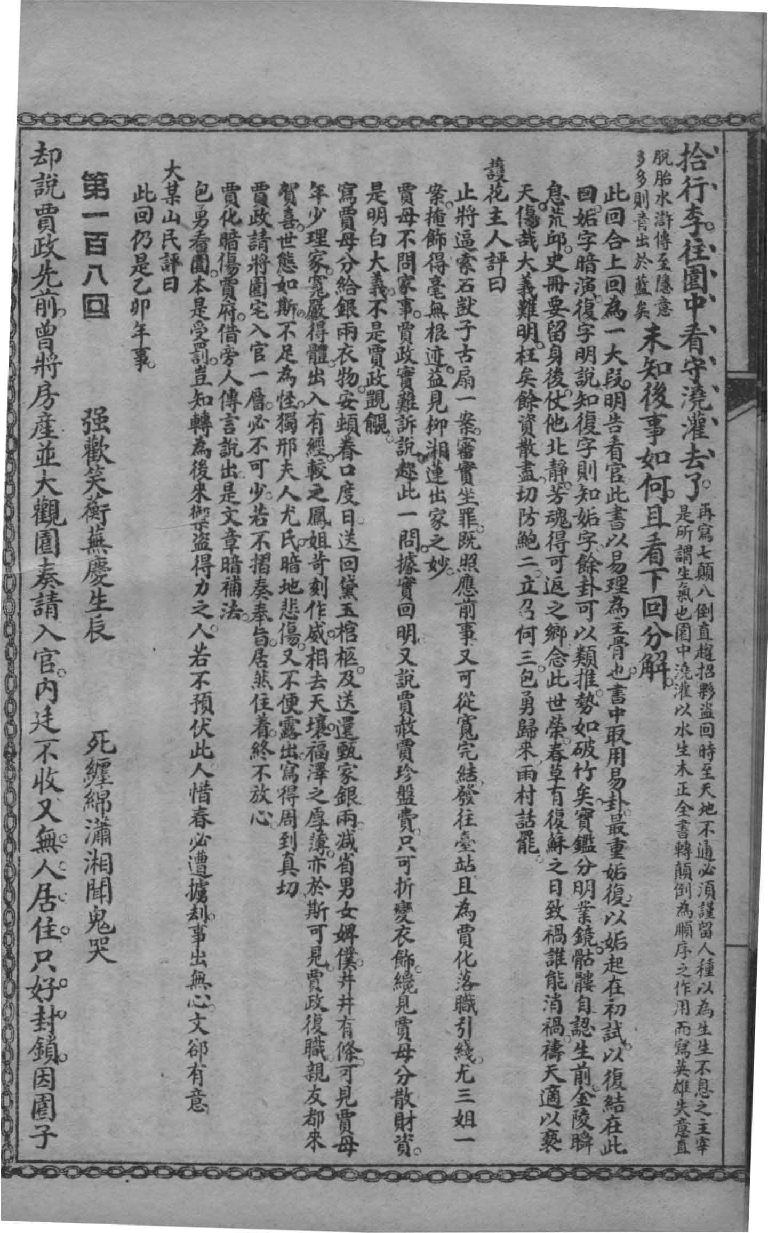 拾行李往園中看守澆灌去了
再寫七顛八倒直趨招夥盜回時至天地不通必須謹留人種以為生生不息之主宰
是所謂生氣也園中澆灌以水生木正全書轉顛倒為順序之作用而寫英雄失意直
脫胎水滸傳至隱意
多多則青出於藍矣
未知後事如何且看下回分解
此回合上回為一大段明告看官此書以易理為主骨也書中取用易卦最重姤復以姤起在初試以復結在此
回姤字暗演復字明說知復字則知姤字餘卦可以類推勢如破竹矣寶鑑分明業鏡骷髏自認生前金陵瞬
息荒邱史冊要留身後仗他北靜芳魂得可返之鄉念此世榮春草有復蘇之日致禍誰能消禍禱天適以褻
天傷哉大義難明枉矣餘資散盡切防鮑二立召何三包勇歸來雨村話罷
護花主人評曰
止將逼索石獃子古扇一案審實坐罪既照應前事又可從寬完結發往臺站且為賈化落職引綫尤三姐一
案掩飾得毫無根迹益見柳湘蓮出家之妙
賈母不問家事賈政實難訴說趁此一問據實回明又說賈赦賈珍盤費只可折變衣飾纔見賈母分散財資
是明白大義不是賈政覬覦
寫賈母分給銀兩衣物安頓眷口度日送回黛玉棺柩及送還甄家銀兩減省男女婢僕井井有條可見賈母
年少理家寬嚴得體出入有經較之鳳姐苛刻作威相去天壤福澤之厚薄亦於斯可見賈政復職親友都來
賀喜世態如斯不足為怪獨邢夫人尤氏暗地悲傷又不便露出寫得周到真切
賈政請將園宅入官一層必不可少若不摺奏奉旨居然住着終不放心
賈化暗傷賈府借旁人傳言說出是文章暗補法
包勇看園本是受罰豈知轉為後來禦盜得力之人若不預伏此人惜春必遭擄刦事出無心文卻有意
大某山民評曰
此回仍是乙卯年事
第一百八回　强歡笑蘅蕪慶生辰　死纏綿瀟湘聞鬼哭
却說賈政先前曾將房產並大觀園奏請入官內廷不收又無人居住只好封鎖因園子